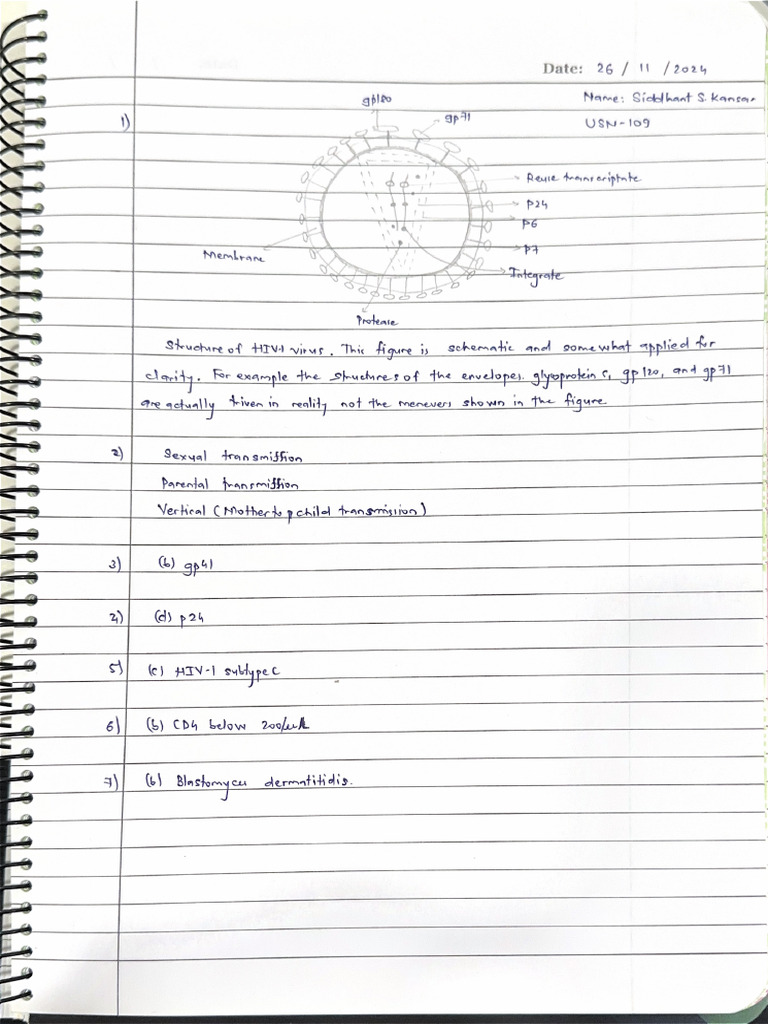 Date: 26 / 11 / 2024
Name: Siddhant S. Kansar
USN-109
1)
gp180
gp71
Reuse transcriptate
P24
P6
P7
Membrane
Integrate
Protease
Structure of HIV-1 virus. This figure is schematic and somewhat applied for
clarity. For example the structures of the envelopes glycoproteins, gp120, and gp71
are actually triven in reality not the menevers shown in the figure.
2) Sexual transmission
Parental transmission
Vertical (Mother to child transmission)
3) (b) gp41
4) (d) p24
5) (c) HIV-1 subtype C
6) (b) CD4 below 200/
7) (b) dermatitidis.